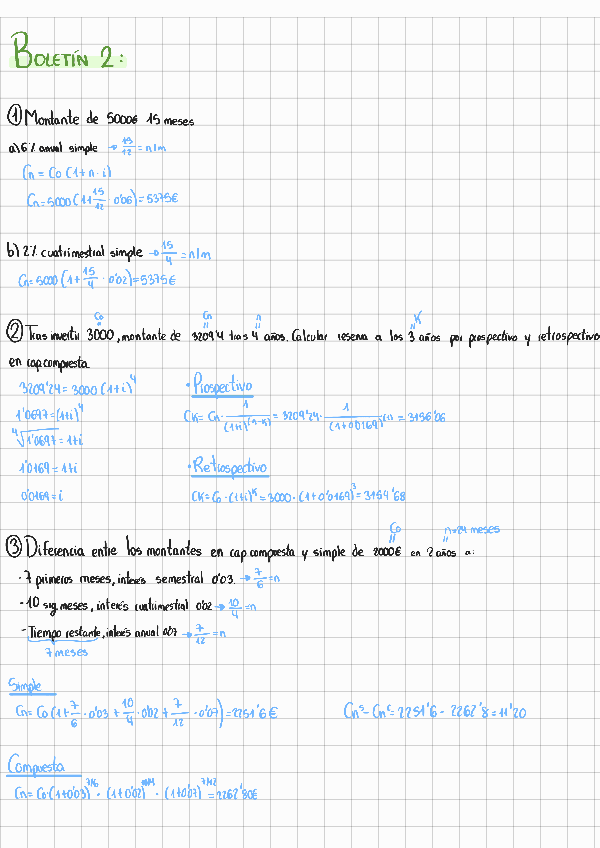 BOLETÍN 2:
① Montante de 5000€ 15 meses
a) 6% anual simple → 15/12 = n/m
Cn = Co (1+n·i)
Cn = 5000 (1+ 15/12 · 0'06) = 5375€
b) 2% cuatrimestral simple → 15/4 = n/m
Cn = 5000 (1 + 15/4 · 0'02) = 5375€
Co Cn n K
② Tras invertir 3000, montante de 3209'4 tras 4 años. Calcular reserva a los 3 años por prospectivo y retrospectivo
en cap compuesta.
3209'24 = 3000 (1+i)^4
1'0697 = (1+i)^4
⁴√1'0697 = 1+i
1'0169 = 1+i
0'0169 = i
· Prospectivo
CK = Cn · 1/(1+i)^(n-K) = 3209'24 · 1/(1+0'0169)^(4-3) = 3156'06
· Retrospectivo
CK = Co · (1+i)^K = 3000 · (1+0'0169)^3 = 3154'68
Co n=24 meses
③ Diferencia entre los montantes en cap compuesta y simple de 2000€ en 2 años a:
· 7 primeros meses, interés semestral 0'03. → 7/6 = n
· 10 sig. meses, interés cuatrimestral 0'02 → 10/4 = n
· Tiempo restante, interés anual 0'07 → 7/12 = n
7 meses
Simple
Cn = Co (1 + 7/6 · 0'03 + 10/4 · 0'02 + 7/12 · 0'07) = 2251'6€
Cn^s - Cn^c = 2251'6 - 2262'8 = 11'20
Compuesta
Cn = Co · (1+0'03)^7/6 · (1+0'02)^10/4 · (1+0'07)^7/12 = 2262'80€